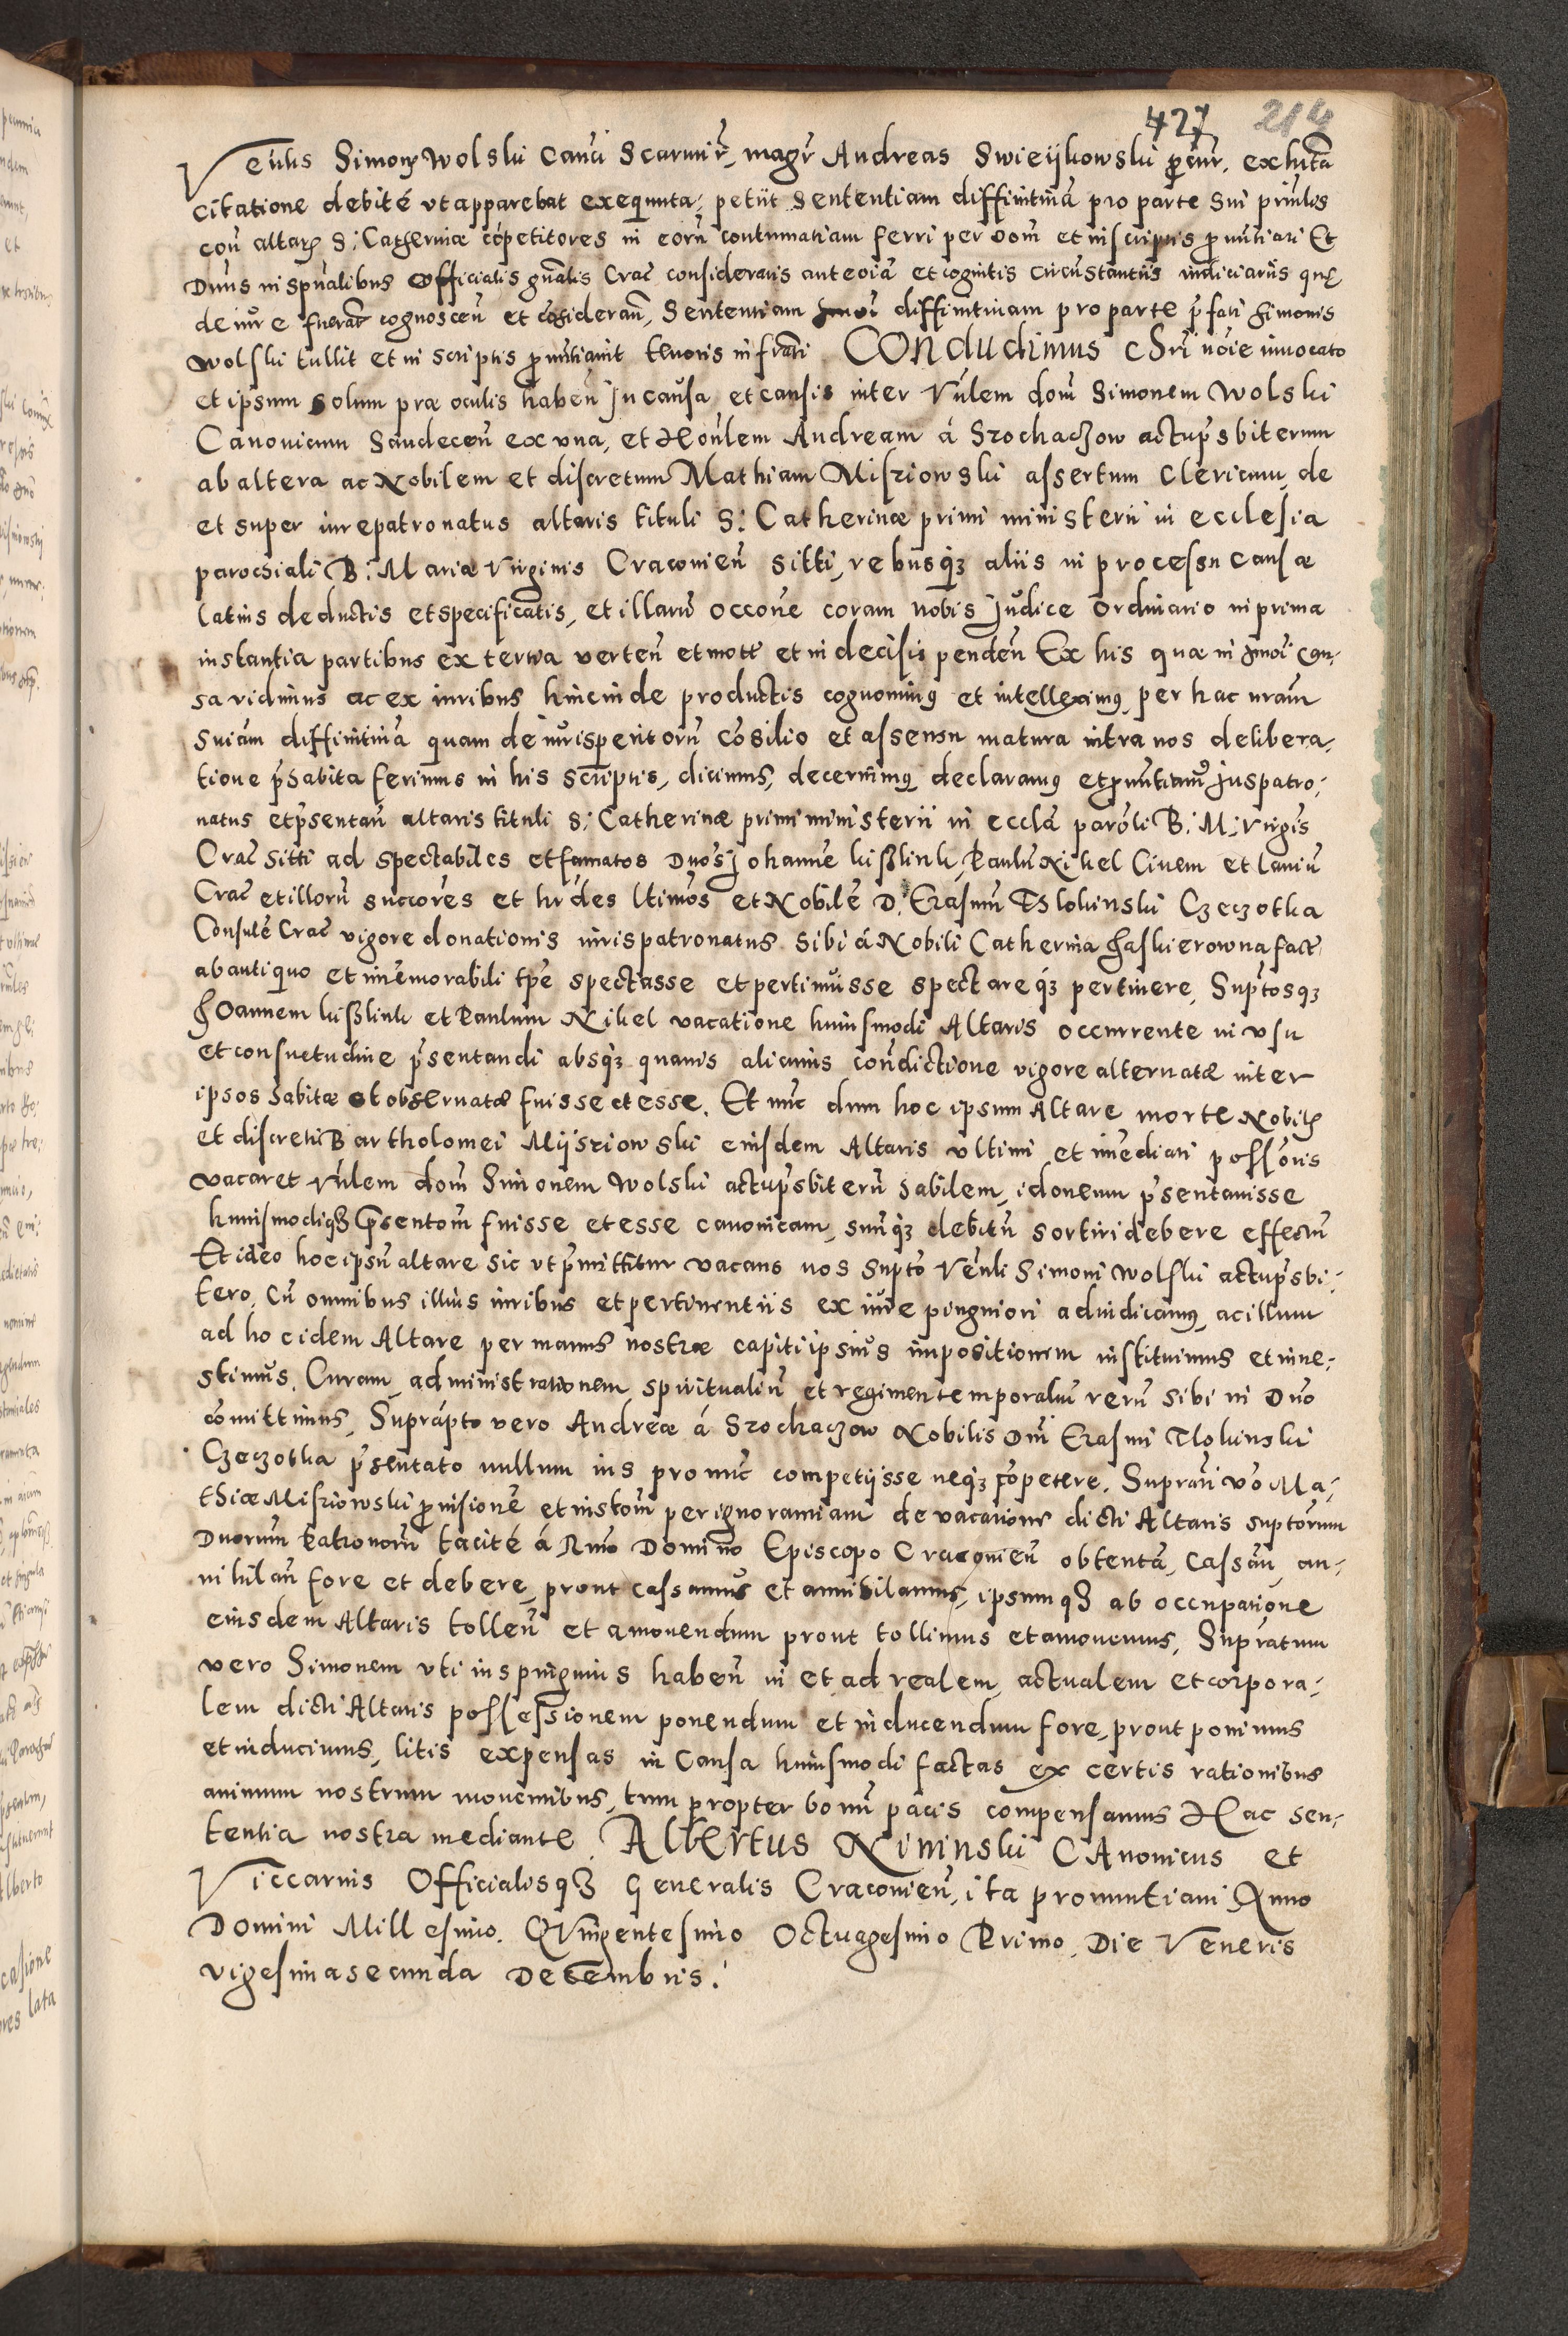 427 214
Venlis Simonis Wolski canci Scarmir, magr Andreas Swieijkowski procur. exhibita
citatione debité ut apparebat exequuta, petiit sententiam diffinitiua pro parte sui prinlis
con altaris S: Catherinae cópetitores in eorū contumatiam ferri per Dom et in scriptis pronūtiari Et
Dnus in spualibus officialis gnalis Crac consideratis ante oia et cognitis circūstantiis iudiciariis quę
de iure fuerāt cognoscen et cōsideran, Sententiam diffinitiuam pro parte prfati Simonis
Wolski tullit et in scriptis pronūtiauit tenoris infrati Condudimus Chri noie inuocato
et ipsum solum prae oculis haben In causa et causis inter Vnlem dom Simonem Wolski
Canonicum Sandecen ex una, et Honlem Andream á Srochaczow actuprsbiterum
ab altera ac Nobilem et discretum Mathiam Misziowski assertum Clericum, de
et super iurepatronatus altaris tituli S: Catherinae primi ministerii in ecclesia
parochiali B: Mariae Virginis Cracouien sitti, rebusq3 aliis in processu causae
latius deductis et specificatis, et illarū occone coram nobis Judice Ordinario in prima
instantia partibus ex terwa verten et mott et in decisis penden Ex his quae in hmoi cau-
sa vidimus ac ex iuribus hincinde productis cognouimus et intelleximus, per hac nram
Sniam diffinitiua quam de iurisperitorū cōsilio et assensu matura intra nos delibera,
tione prhabita ferimus in his scriptis, dicimus, decernimus declaramus et pronuntiamus Juspatro,
natus et prsentan altaris tituli S: Catherinae primi ministerii in eccla paroli B: M: Virgis
Crac sitti ad spectabiles et famatos Dnos Johanne kislink, Paulū Nikel Ciuem et laniū
Crac et illorū succores et hrdes ltimos et Nobilé D: Erasmū Tslokinski Czeczotka
Consulé Crac vigore donationis iurispatronatus sibi á Nobili Catherina Gaskierowna fact
ab antiquo et inmemorabili tpe spectasse et pertinuisse spectareq3 pertinere, Suptosq3
Joannem kislink et Paulum Nikel vacatione huiusmodi Altaris occurrente in usu
et consuetudine prsentandi absq3 quauis alicuius condictione vigore alternatae inter
ipsos habitae et obseruatae fuisse et esse. Et nuc dum hoc ipsum Altare morte Nobilis
et discreti Bartholomei Mijsziowski eiusdem Altaris ultimi et imediati possoris
vacaret Vnlem dom Simonem Wolski actuprsbiterū habilem, idoneum prsentauisse
huiusmodiq3 Prsentom fuisse et esse canonicam, suūq3 debitū sortiri debere effectū
Et ideo hoc ipsū altare sic ut prmittitur vacans nos supto Venli Simoni Wolski actuprsbi-
tero, Cū omnibus illius iuribus et pertinentiis ex iure pinguiori adiudicamus, ac illum
ad hoc idem Altare per manus nostrae capiti ipsius impositionem instituimus et inue-
stimus. Curam, administrationem spiritualiū et regimen temporaliū rerū sibi in Dno
cōmittimus, Suprapto vero Andreae á Srochaczow Nobilis Dni Erasmi Tlokinski
Czeczotka prsentato nullum ius pro nuc competijsse neq3 cōpetere. Suprati vo Ma-
thiae Misziowski prouisioné et instom per ignorantiam de vacatione dicti Altaris suptorum
Dnorum Patronorū tacité á Rmo Domino Episcopo Cracouien obtentā, Cassan, an-
nihilan fore et debere, prout cassamus et annihilamus, ipsumq3 ab occupatione
eiusdem Altaris tollen et amouendum prout tollimus et amouemus, Supratum
vero Simonem uti ius pinguius haben in et ad realem, actualem et corpora-
lem dicti Altaris possessionem ponendum et inducendum fore, prout ponimus
et inducimus, litis expensas in Causa huiusmodi factas ex certis rationibus
animum nostrum mouentibus, tum propter bonū pacis compensamus Hac sen-
tentia nostra mediante. Albertus Nininski Canonicus et
Viccarius Officialisq3 Generalis Cracouien, ita pronuntiaui Anno
Domini Millesimo. Quingentesimo Octuagesimo Primo, Die Veneris
vigesimasecunda Decembris.